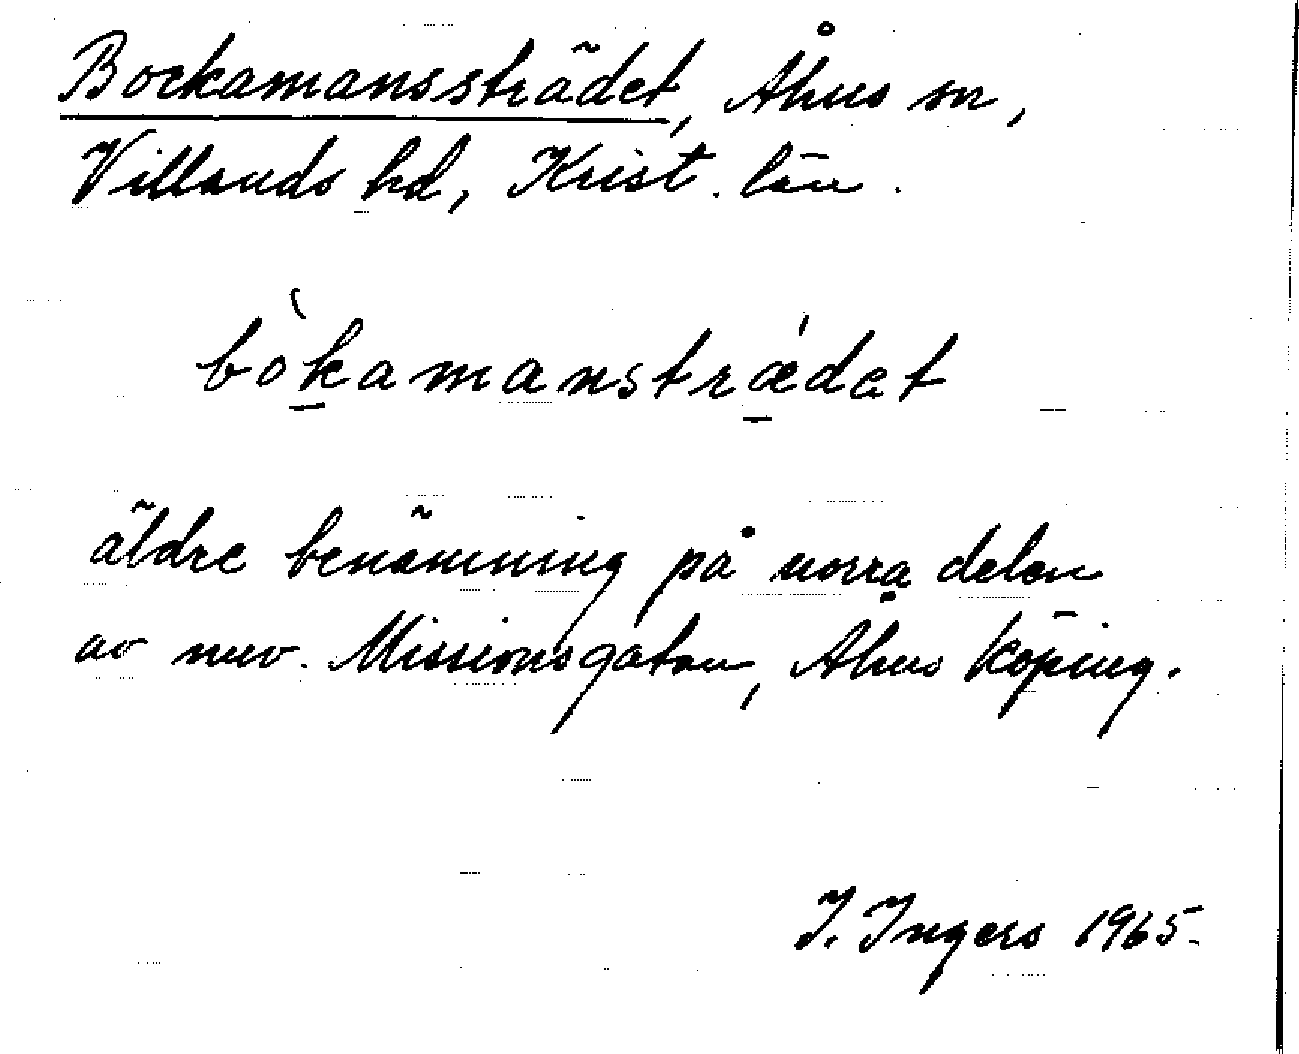 Bockamanssträdet, Åhus sn,
Villands hd, Krist. län.
bòk̠amanstrǽ̠dat
äldre benämning på norra delen
av nuv. Missionsgatan, Åhus köping.
I. Ingers 1965.